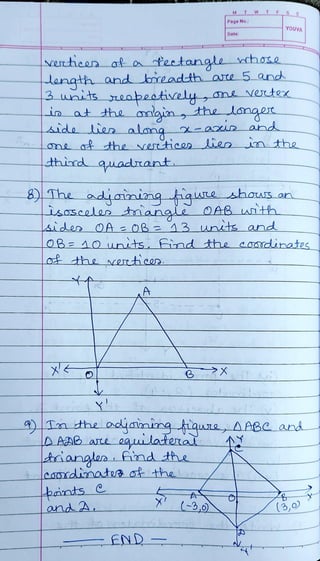 M T W T F S S
Page No.:
Date:
YOUVA
vertices of a rectangle whose
length and breadth are 5 and
3 units respectively, one vertex
is at the origin, the longer
side lies along x-axis and
one of the vertices lies in the
third quadrant.
8) The adjoining figure shows an
isosceles triangle OAB with
sides OA = OB = 13 units and
OB = 10 units. Find the coordinates
of the vertices.
Y
A
X'
O
B
X
Y'
9) In the adjoining figure, ΔABC and
ΔADB are equilateral
triangles. Find the
coordinates of the
points C
and D.
Y
C
X'
A
(-3,0)
O
B
(3,0)
X
D
Y'
— END —